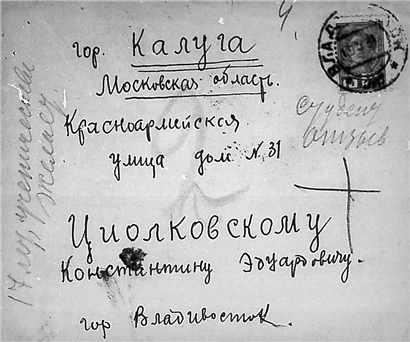 гор. Калуга
Московская область.
Красноармейская
улица дом №31
Циолковскому
Константину Эдуардовичу.
гор Владивосток.
студент
отзыв
17
ВЛАД